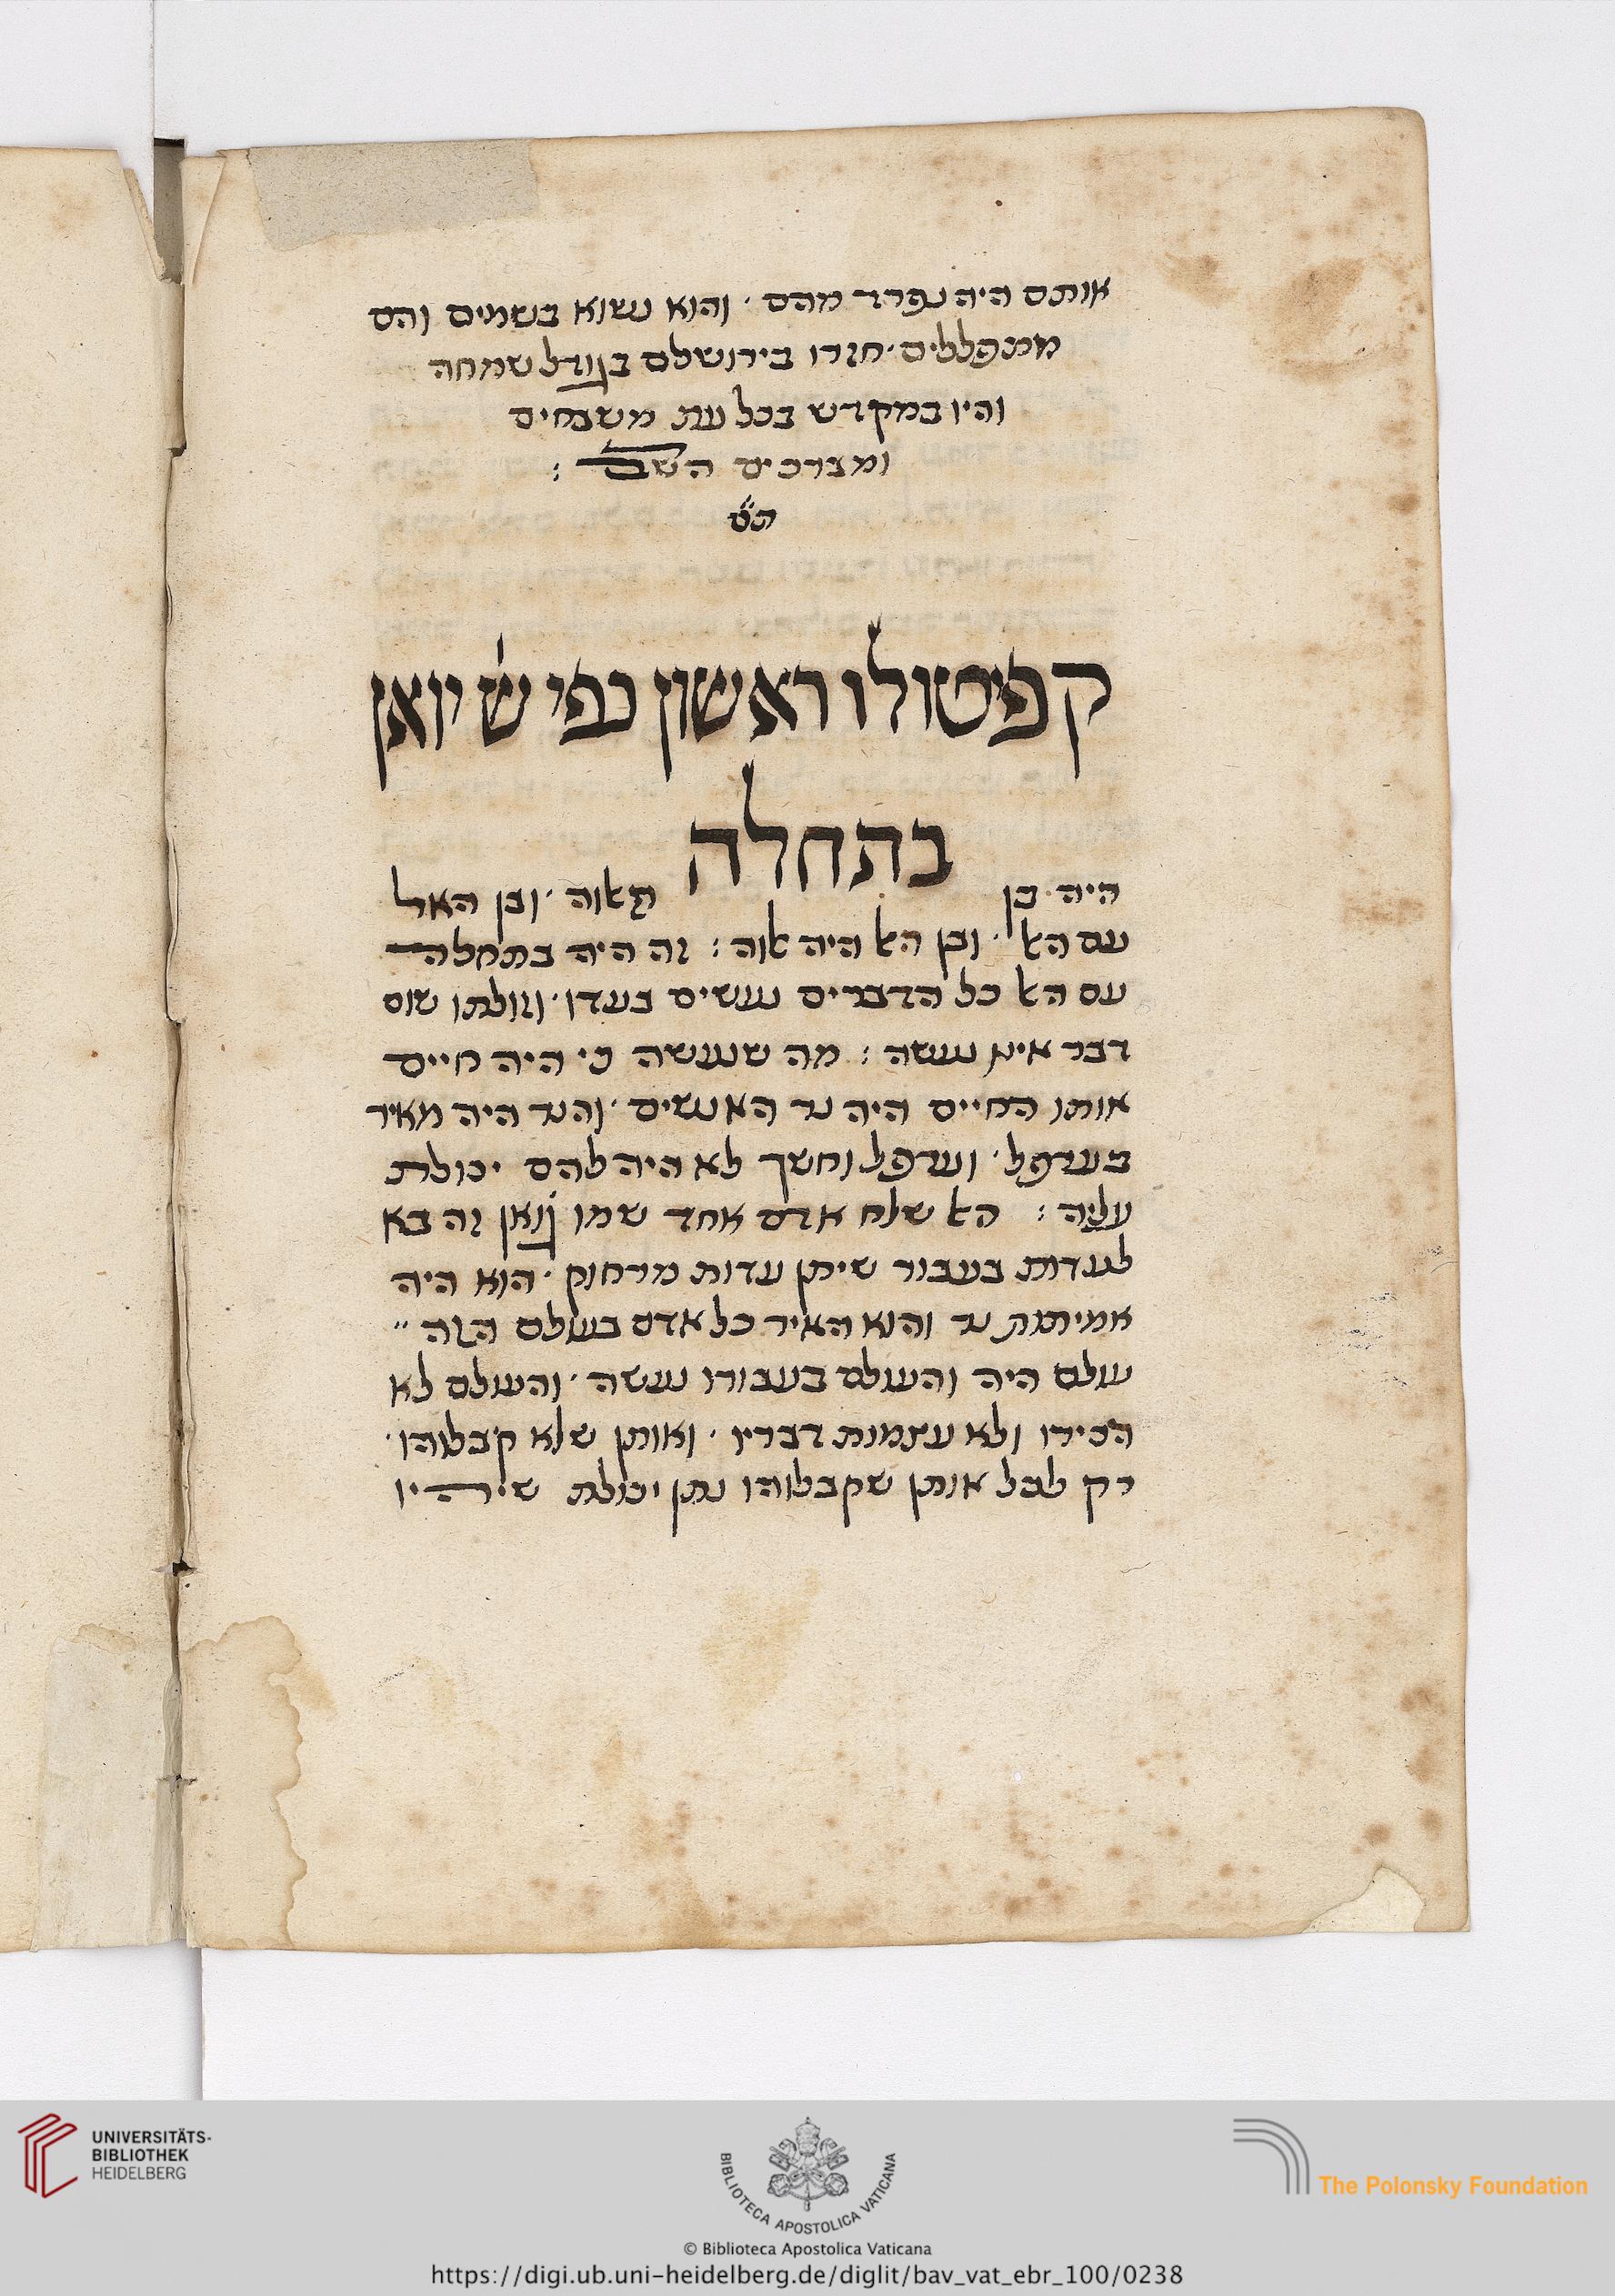 אותם היה נפרד מהם · והוא נשוא בשמים והם
מתפללים · חזרו בירושלם בגודל שמחה
והיו במקדש בכל עת משבחים
ומברכים השב :
קפיטולו ראשון כפי ש' יואן
בתחלה
היה בן תאוה · ובן האל
עם האל · ובן האל היה אלוה : זה היה בתחלה
עם האל כל הדברים נעשים בעדו · וזולתו שום
דבר אינו נעשה : מה שנעשה כי היה חיים
אותו החיים היה נר האנשים · והנר היה מאיר
בערפל · וערפל וחשך לא היה להם יכולת
עליה : האל שלח אדם אחד שמו גואן זה בא
לעדות בעבור שיתן עדות מרחוק · הוא היה
אמיתות נר והוא האיר כל אדם בעולם הזה
עולם היה והעולם בעבורו נעשה · והעולם לא
הכירו ולא עצמות דבריו · ואותן שלא קבלוהו ·
רק לכל אותן שקבלוהו נתן יכולת שיהיו
UNIVERSITÄTS-
BIBLIOTHEK
HEIDELBERG
BIBLIOTECA APOSTOLICA VATICANA
The Polonsky Foundation
© Biblioteca Apostolica Vaticana
https://digi.ub.uni-heidelberg.de/diglit/bav_vat_ebr_100/0238